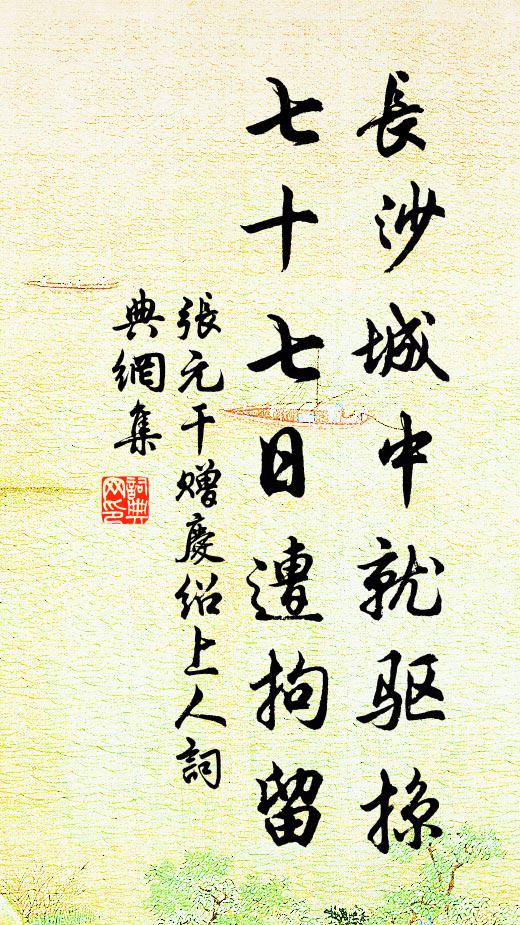 長沙城中就驱掠
七十七日遭拘留
張元干赠慶绍上人詞
典網集
詞典网印